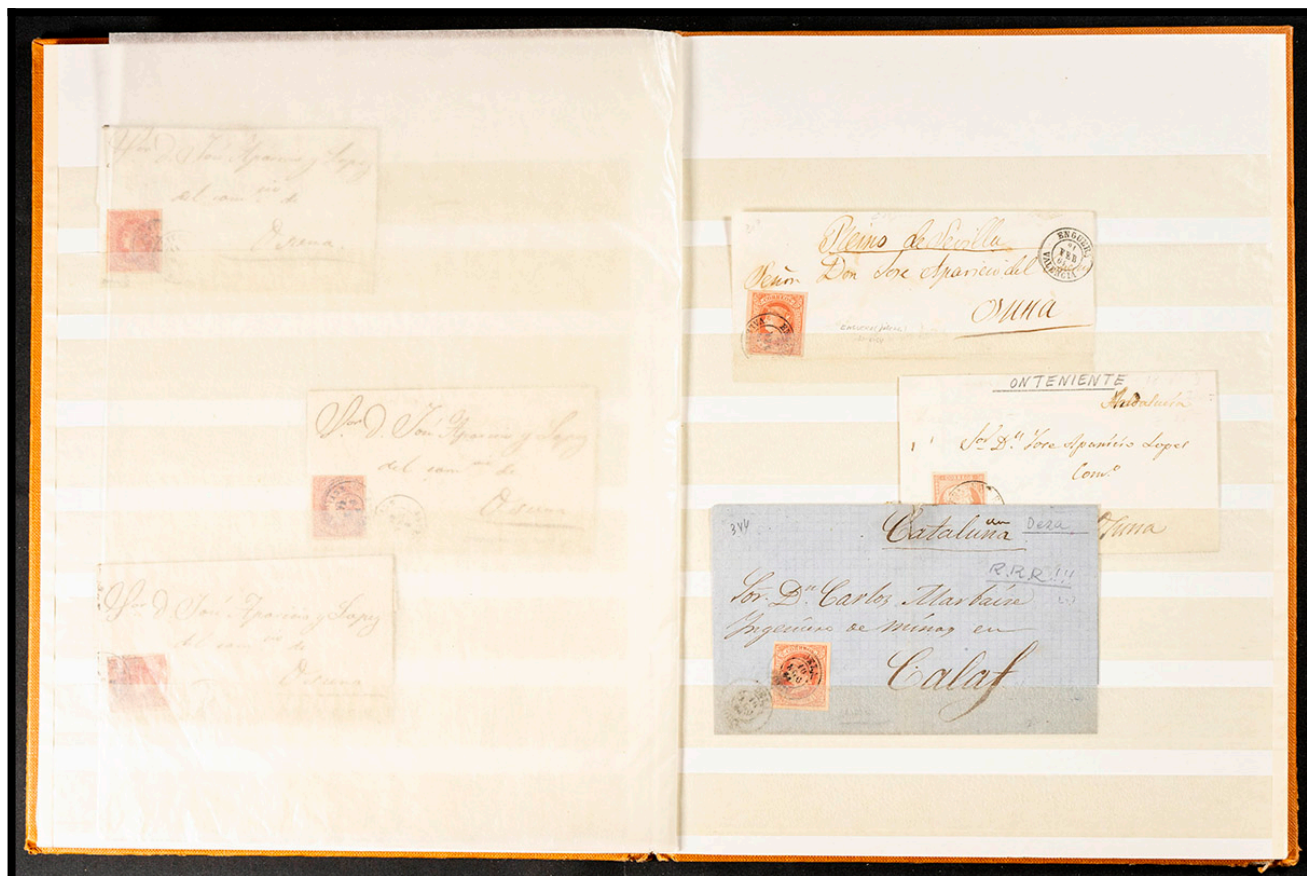 Sor D. José Aparicio y Lopez
del com.cio de
Osuna.
Sor D. José Aparicio y Lopez
del com.cio de
Osuna
Sor D. José Aparicio y Lopez
del com.cio de
Osuna
Reino de Sevilla
ENGUERA
FEB
VALENCIA
Señor Don Jose Aparicio del
Osuna
ONTENIENTE
Andalucia
Sor Dn Jose Aparicio Lopez
Com.o
Osuna
344
Cataluña
Deza
R.R.R!!!
Sor. Dn Carlos Marbaise
Ingeniero de minas en
Calaf